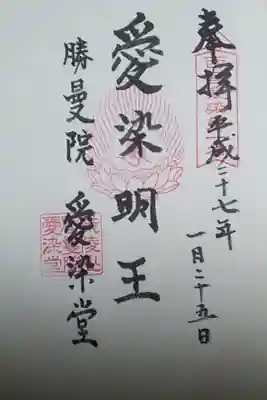 奉拝 平成二十七年
一月二十五日
愛染明王
勝曼院 愛染堂
愛染堂